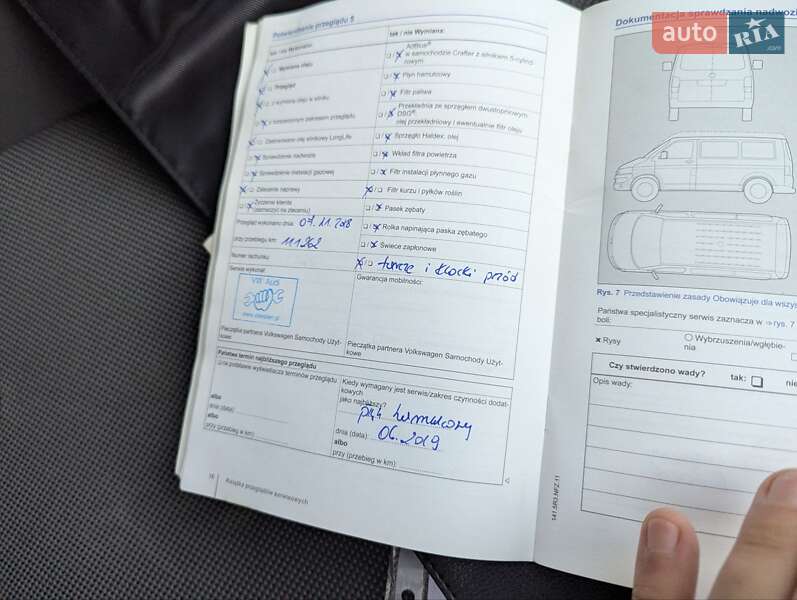 Potwierdzenie przeglądu 5
tak / nie Wykonano:
Wymiana oleju
Przegląd
z wymianą oleju w silniku
z rozszerzonym zakresem przeglądu
Zastosowano olej silnikowy LongLife
Sprawdzenie nadwozia
Sprawdzenie instalacji gazowej
Zalecenie naprawy
Życzenie klienta
(zaznaczyć na zleceniu)
Przegląd wykonano dnia: 07.11.2018
przy przebiegu km: 111262
Numer rachunku:
Serwis wykonał:
Pieczątka partnera Volkswagen Samochody Użyt-
kowe
tak / nie Wymiana:
AdBlue®
w samochodzie Crafter z silnikiem 5-cylind
rowym
Płyn hamulcowy
Filtr paliwa
Przekładnia ze sprzęgłem dwustopniowym
DSG®:
olej przekładniowy i ewentualnie filtr oleju
Sprzęgło Haldex: olej
Wkład filtra powietrza
Filtr instalacji płynnego gazu
Filtr kurzu i pyłków roślin
Pasek zębaty
Rolka napinająca paska zębatego
Świece zapłonowe
tarcze i klocki przód
Gwarancja mobilności:
Pieczątka partnera Volkswagen Samochody Użyt-
kowe
Państwa termin najbliższego przeglądu
albo
dnia (data):
albo
przy (przebieg w km):
Kiedy wymagany jest serwis/zakres czynności dodat-
kowych
jako najbliższy?
płyn hamulcowy
dnia (data): 06.2019
albo
przy (przebieg w km):
16
Książka przeglądów serwisowych
Dokumentacja sprawdzania nadwozi
auto RIA
.com
Rys. 7 Przedstawienie zasady Obowiązuje dla wszys
Państwa specjalistyczny serwis zaznacza w ⇒rys. 7
boli:
x Rysy
Wybrzuszenia/wgłębie-
nia
Czy stwierdzono wady? tak: nie
Opis wady:
141.5R3.NFZ.11